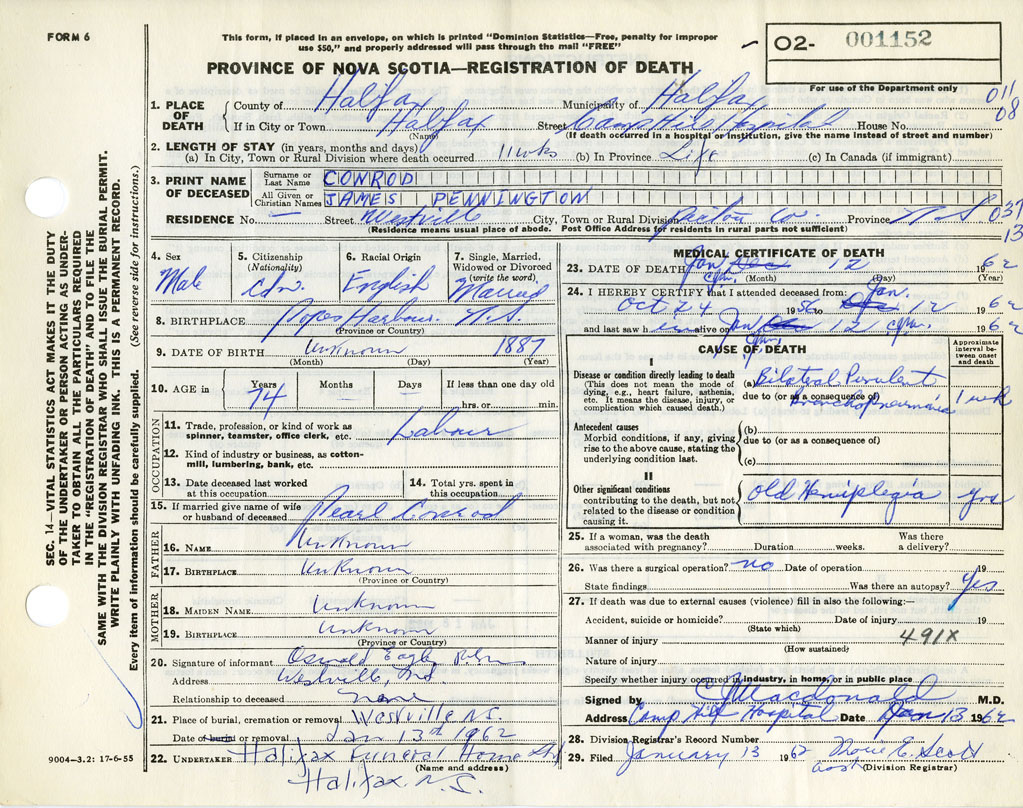 FORM 6
This form, if placed in an envelope, on which is printed "Dominion Statistics—Free, penalty for improper
use $50," and properly addressed will pass through the mail "FREE"
O2- 001152
PROVINCE OF NOVA SCOTIA—REGISTRATION OF DEATH
For use of the Department only
011
08
1. PLACE OF DEATH
County of Halifax Municipality of Halifax
If in City or Town Halifax Street Camp Hill Hospital House No.
(Name) (If death occurred in a hospital or institution, give the name instead of street and number)
2. LENGTH OF STAY (in years, months and days)
(a) In City, Town or Rural Division where death occurred 11 wks (b) In Province Life (c) In Canada (if immigrant)
3. PRINT NAME OF DECEASED
Surname or Last Name CONROD
All Given or Christian Names JAMES PENNINGTOW
RESIDENCE No. — Street Westville City, Town or Rural Division Pictou Co. Province N.S 037
13
(Residence means usual place of abode. Post Office Address for residents in rural parts not sufficient)
SEC. 14—VITAL STATISTICS ACT MAKES IT THE DUTY
OF THE UNDERTAKER OR PERSON ACTING AS UNDER-
TAKER TO OBTAIN ALL THE PARTICULARS REQUIRED
IN THE "REGISTRATION OF DEATH" AND TO FILE THE
SAME WITH THE DIVISION REGISTRAR WHO SHALL ISSUE THE BURIAL PERMIT.
WRITE PLAINLY WITH UNFADING INK. THIS IS A PERMANENT RECORD.
Every item of information should be carefully supplied. (See reverse side for instructions.)
4. Sex
Male
5. Citizenship
(Nationality)
Cdn.
6. Racial Origin
English
7. Single, Married,
Widowed or Divorced
(write the word)
Married
8. BIRTHPLACE Popes Harbour. N.S.
(Province or Country)
9. DATE OF BIRTH Unknown 1887
(Month) (Day) (Year)
10. AGE in Years Months Days If less than one day old
74 hrs. or min.
OCCUPATION
11. Trade, profession, or kind of work as
spinner, teamster, office clerk, etc. Labour
12. Kind of industry or business, as cotton-
mill, lumbering, bank, etc.
13. Date deceased last worked
at this occupation
14. Total yrs. spent in
this occupation
15. If married give name of wife
or husband of deceased Pearl Conrod
FATHER
16. NAME Unknown
17. BIRTHPLACE Unknown
(Province or Country)
MOTHER
18. MAIDEN NAME Unknown
19. BIRTHPLACE Unknown
(Province or Country)
20. Signature of informant Oswald Eagle
Address Westville, N.S.
Relationship to deceased none
21. Place of burial, cremation or removal Westville N.S.
Date of burial or removal Jan 13th 1962
22. UNDERTAKER Halifax Funeral Home Ltd
(Name and address)
Halifax, N.S.
9004—3.2: 17-6-55
MEDICAL CERTIFICATE OF DEATH
23. DATE OF DEATH Jan 12 1962
(Month) (Day) (Year)
24. I HEREBY CERTIFY that I attended deceased from:
Oct 24 1956 to Jan. 12 1962
and last saw him alive on Jan 12 1962
CAUSE OF DEATH
Approximate
interval be-
tween onset
and death
I
Disease or condition directly leading to death
(This does not mean the mode of
dying, e.g., heart failure, asthenia,
etc. It means the disease, injury, or
complication which caused death.)
(a) Bilateral Purulent
due to (or as a consequence of)
Bronchopneumonia 1 wk
Antecedent causes
Morbid conditions, if any, giving
rise to the above cause, stating the
underlying condition last.
(b)
due to (or as a consequence of)
(c)
II
Other significant conditions
contributing to the death, but not
related to the disease or condition
causing it.
Old Hemiplegia yrs
25. If a woman, was the death
associated with pregnancy? Duration weeks. Was there
a delivery?
26. Was there a surgical operation? no Date of operation 19
State findings Was there an autopsy? Yes
27. If death was due to external causes (violence) fill in also the following:—
Accident, suicide or homicide? Date of injury 19
(State which)
Manner of injury 491X
(How sustained)
Nature of injury
Specify whether injury occurred in industry, in home, or in public place
Signed by CJMacdonald M.D.
Address Camp Hill Hospital Date Jan 13 1962
28. Division Registrar's Record Number
29. Filed January 13 1962 E. Scott
(Division Registrar)